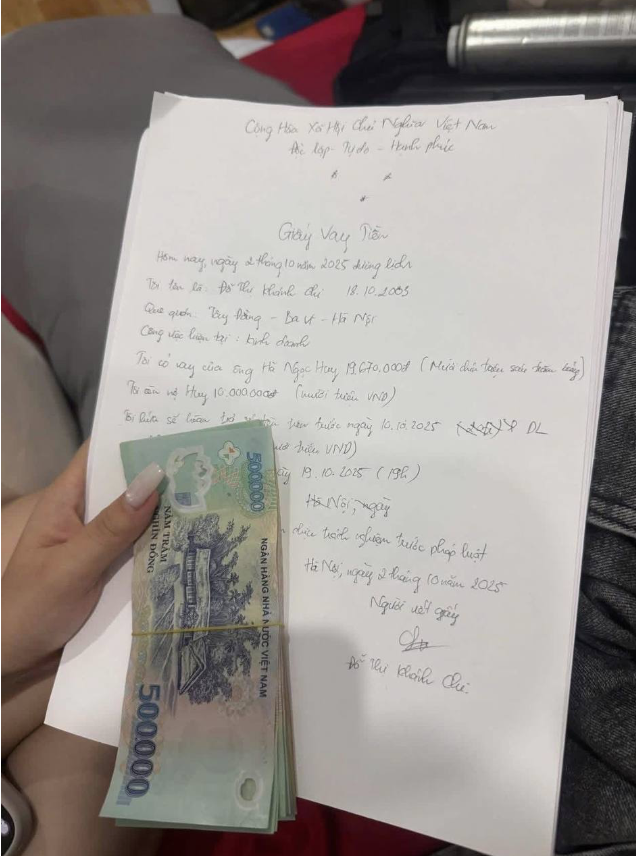 Cộng Hòa Xã Hội Chủ Nghĩa Việt Nam
Độc lập - Tự do - Hạnh phúc
Giấy Vay Tiền
Hôm nay, ngày 2 tháng 10 năm 2025 dương lịch
Tôi tên là: Đỗ Thị Khánh Chi 18.10.2003
Quê quán: Tòng Bạt - Ba Vì - Hà Nội
Công việc hiện tại: kinh doanh
Tôi có vay của ông Hà Ngọc Huy 19.670.000đ (Mười chín triệu sáu trăm bảy)
Tôi còn nợ Huy 10.000.000đ (mười triệu VND)
Tôi hứa sẽ hoàn trả trước ngày 10.10.2025 DL
triệu VND)
ngày 19.10.2025 (19h)
Hà Nội, ngày
chịu trách nghiệm trước pháp luật
Hà Nội, ngày 2 tháng 10 năm 2025
Người viết giấy
Đỗ Thị Khánh Chi
500000
NGÂN HÀNG NHÀ NƯỚC VIỆT NAM
NĂM TRĂM
NGHÌN ĐỒNG
500000